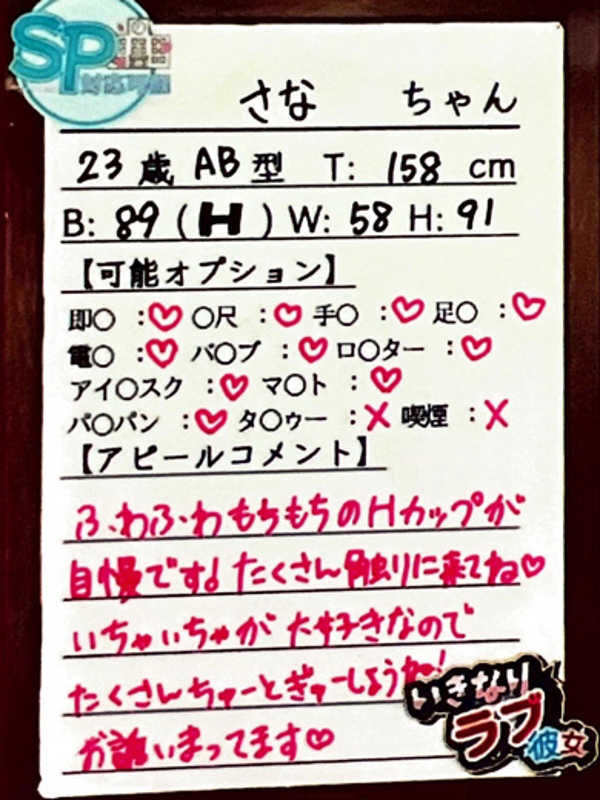 SP
対応可能
さな ちゃん
23歳 AB型 T: 158 cm
B: 89 (H) W: 58 H: 91
【可能オプション】
即〇 :♡ 〇尺 :♡ 手〇 :♡ 足〇 :♡
電〇 :♡ バ〇ブ :♡ ロ〇ター :♡
アイ〇スク :♡ マ〇ト :♡
パ〇パン :♡ タ〇ゥー :✕ 喫煙 :✕
【アピールコメント】
ふわふわもちもちのHカップが
自慢です! たくさん触りに来てね♡
いちゃいちゃが大好きなので
たくさんちゅーとぎゅーしようね!
お誘いまってます♡
いきなり
ラブ彼女